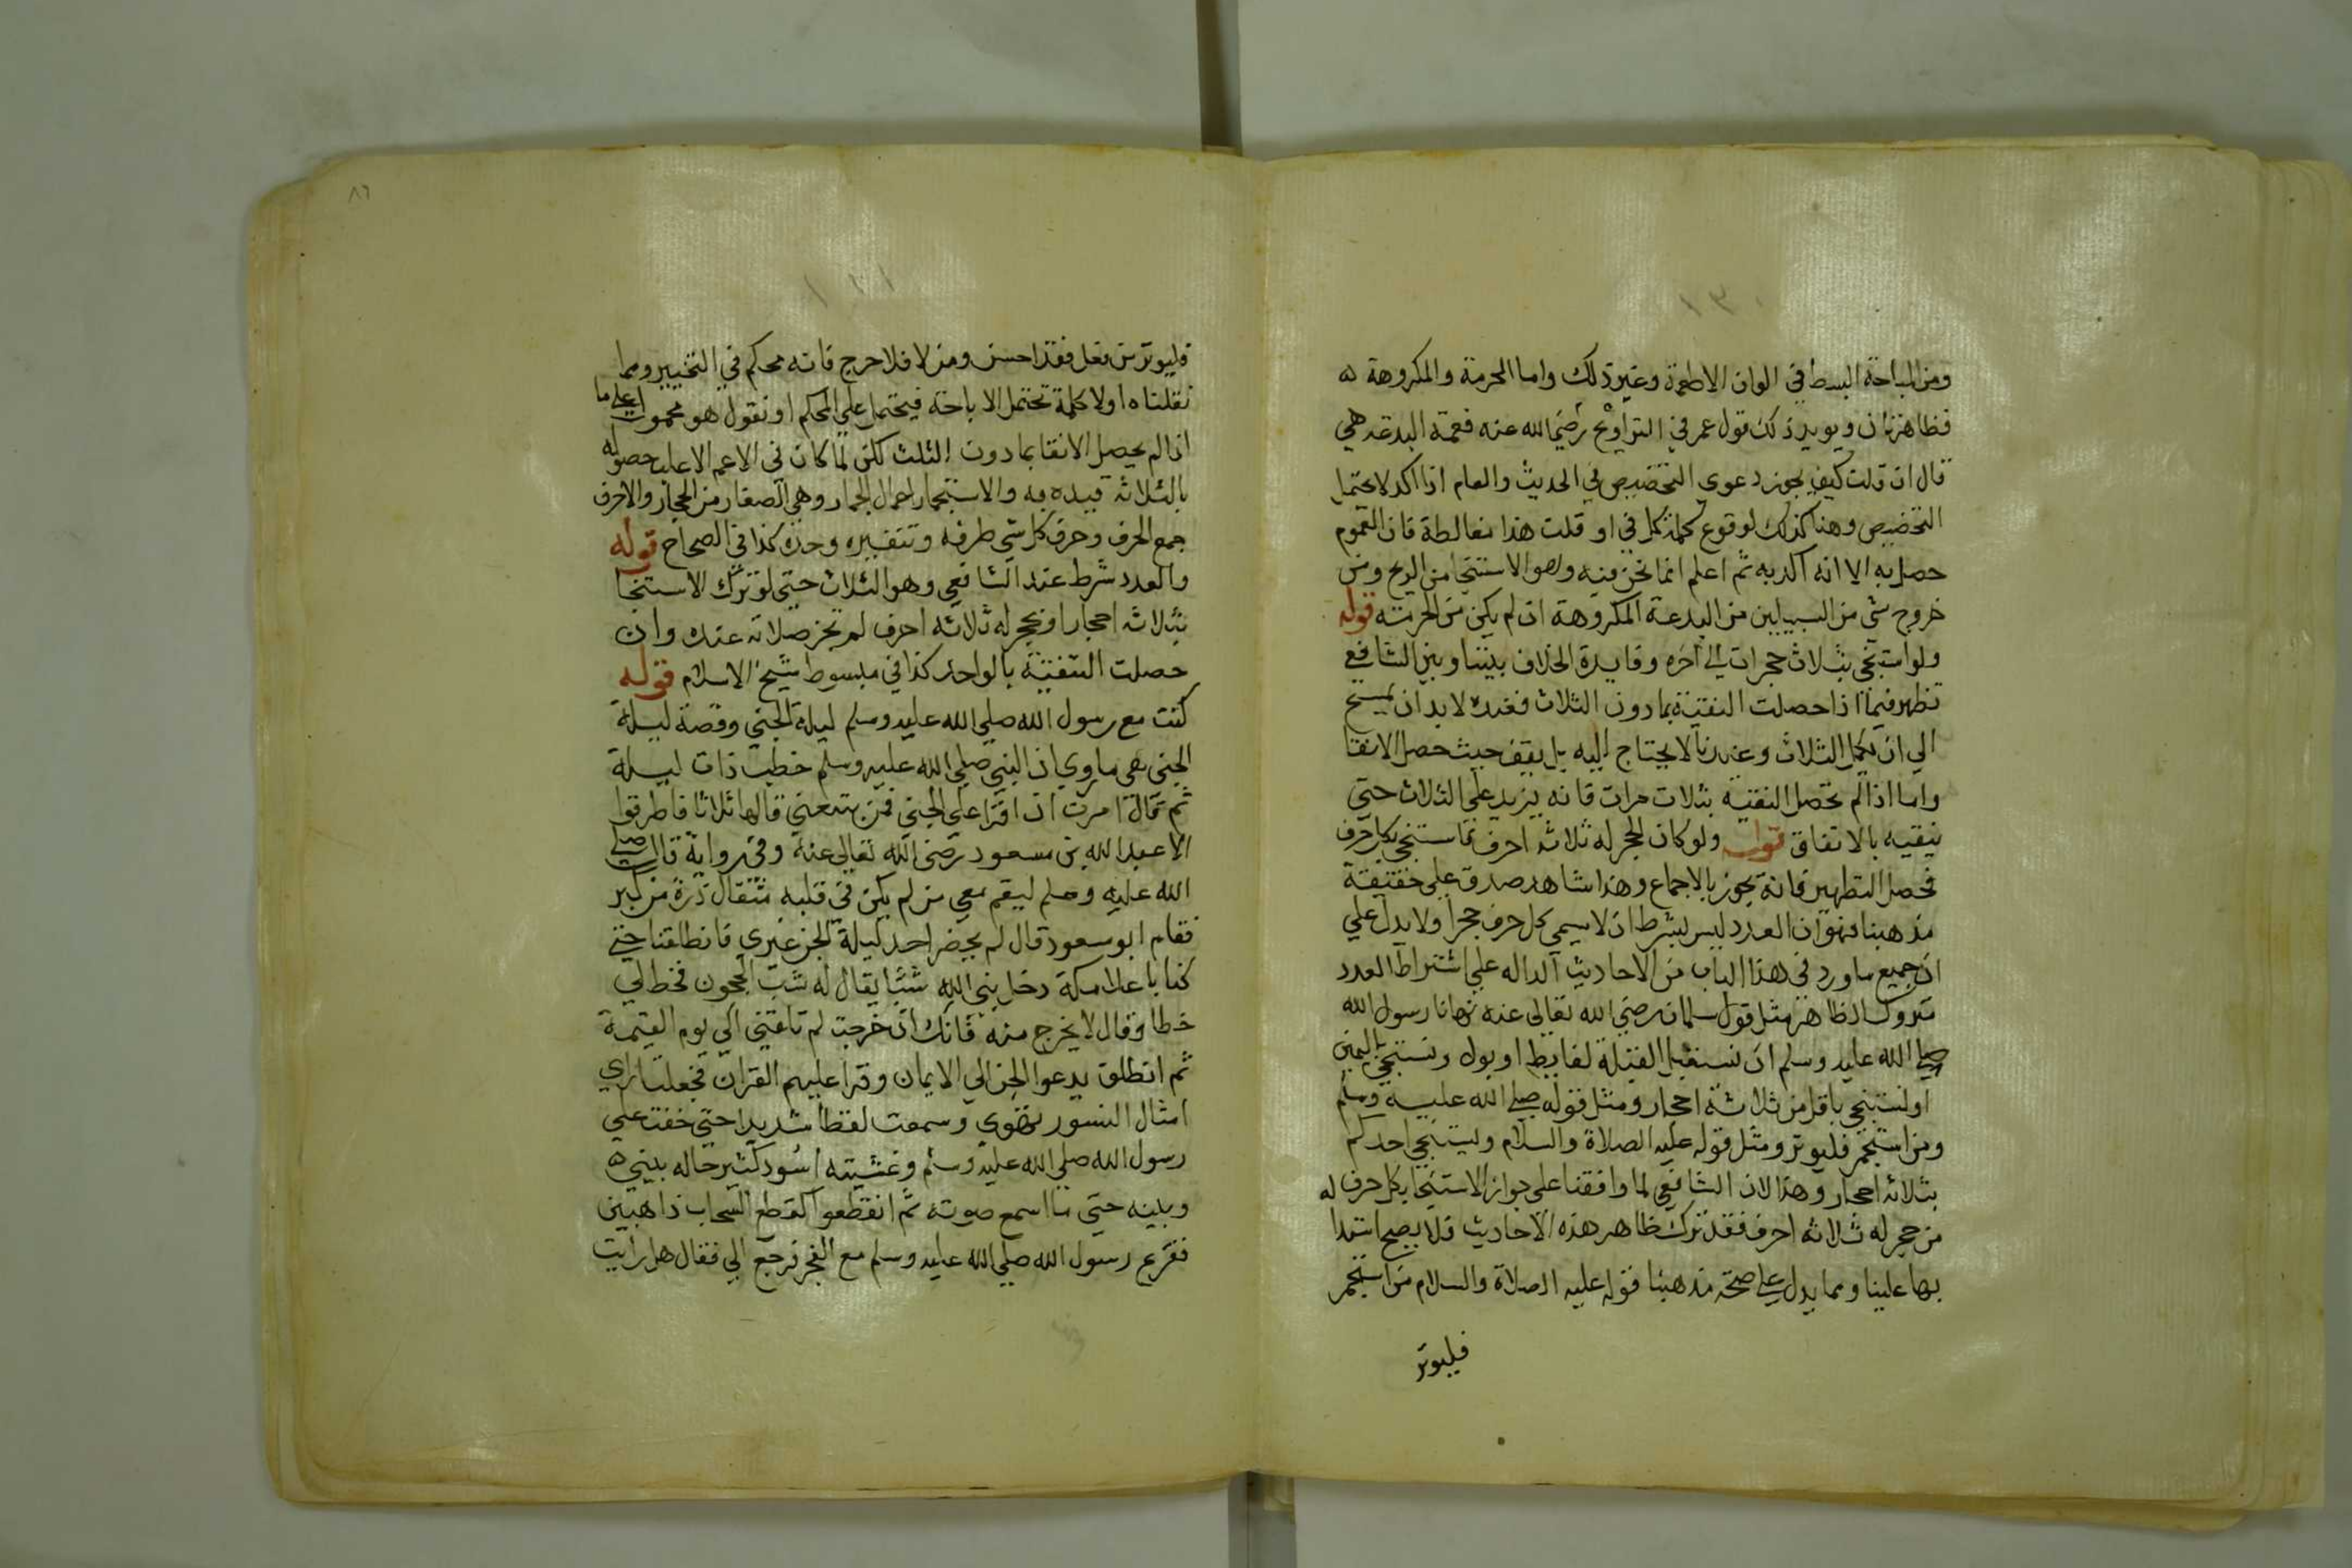 ١٣٠
ومن المباحة البسط في الوان الاطعمة وغير ذلك واما المحرمة والمكروهة ه
فظاهرتان ويويد ذلك قول عمر في التراويح رضي الله عنه فعمة البدعة هي
قال ان قلت كيف يجوز دعوى التخصيص في الحديث والعام اذا اكد لا يحتمل
التخصيص وهنا كذلك لوقوع كلمة كل في او قلت هذا مغالطة فان العموم
حصل به الا انه اكد به ثم اعلم انما نحن فيه وهو الاستنجا من الريح ومن
خروج شي من السبيلين من البدعة المكروهة ان لم يكن من الحرمته قوله
ولو استنجى بثلاث حجرات الي آخره وفايدة الخلاف بيننا وبين الشافعي
تظهر فيما اذا حصلت النقية بما دون الثلاث فعنده لا بد ان يمسح
الي ان يكمل الثلاث وعندنا لا يحتاج اليه بل يقف حيث حصل الانقا
واما اذا لم تحصل النقية بثلاث مرات فانه يزيد علي الثلاث حتي
ينقيه بالاتفاق قوله ولو كان لحجر له ثلاثة احرف فاستنجى بكل حرف
فحصل التطهير فانه يجوز بالاجماع وهذا شاهد صدق علي حقيقة
مذهبنا فهو ان العدد ليس بشرط ان لا يسمي كل حرف حجرا ولا يدل علي
ان جميع ما ورد في هذا الباب من الاحاديث الداله علي اشتراط العدد
متروك الظاهر مثل قول سلمان رضي الله تعالى عنه نهانا رسول الله
صلي الله عليه وسلم ان نستقبل القبلة لغايط او بول ونستنجي باليمين
او نستنجي باقل من ثلاثة احجار ومثل قوله صلي الله عليه وسلم
ومن استجمر فليوتر ومثل قوله عليه الصلاة والسلام وليستنجي احدكم
بثلاثة احجار وهذا لان الشافعي لما وافقنا علي جواز الاستنجا بكل حرف له
من حجر له ثلاثه احرف فقد ترك ظاهر هذه الاحاديث فلا يصح استدا
بها علينا ومما يدل علي صحة مذهبنا قوله عليه الصلاة والسلام من استجمر
فليوتر
٨٦
١٣١
فليوتر من فعل فقد احسن ومن لا فلا حرج فانه محكم في التخيير ومما
نقلناه اولا كلمة تحتمل الاباحة فيحتمل علي المحكم او نقول هو محمول علي ما
اذا لم يحصل الانقا بما دون الثلث لكن لما كان في الاعم الاغلب حصوله
بالثلاثة قيده به والاستجمار اعمال الجمار وهي الصغار من الحجار والاحرف
جمع الحرف وحرف كل شي طرفه وتنفيره وحده كذا في الصحاح قوله
والعدد شرط عند الشافعي وهو الثلاث حتي لو ترك الاستنجا
بثلاثة احجار او بحجر له ثلاثه احرف لم تجز صلاته عنده وان
حصلت التنقية بالواحد كذا في مبسوط شيخ الاسلام قوله
كنت مع رسول الله صلي الله عليه وسلم ليلة الجني وقصة ليلة
الجني هي ما روي ان النبي صلي الله عليه وسلم خطب ذات ليلة
ثم قال امرت ان اقرا علي الجني فمن يتبعني قالها ثلاثا فاطرقوا
الا عبد الله بن مسعود رضي الله تعالى عنه وفي رواية قال صلي
الله عليه وسلم ليقم معي من لم يكن في قلبه مثقال ذرة من كبر
فقام ابو سعود قال لم يحضر احد ليلة الجن غيري فانطلقنا حتي
كنا باعلا مكة دخل بني الله شبا يقال له شب الحجون فخط لي
خطا وقال لا يخرج منه فانك ان خرجت لم تلقني الي يوم القيمة
ثم انطلق يدعوا الجن الي الايمان وقرا عليهم القران فجعلت اري
امثال النسور تهوي وسمعت لغطا شديدا حتي خفت علي
رسول الله صلي الله عليه وسلم وغشيته اسود كثير حاله بيني ه
وبينه حتي ما اسمع صوته ثم انقطعوا كقطع السحاب ذاهبين
ففرع رسول الله صلي الله عليه وسلم مع الفجر فرجع الي فقال هل رايت